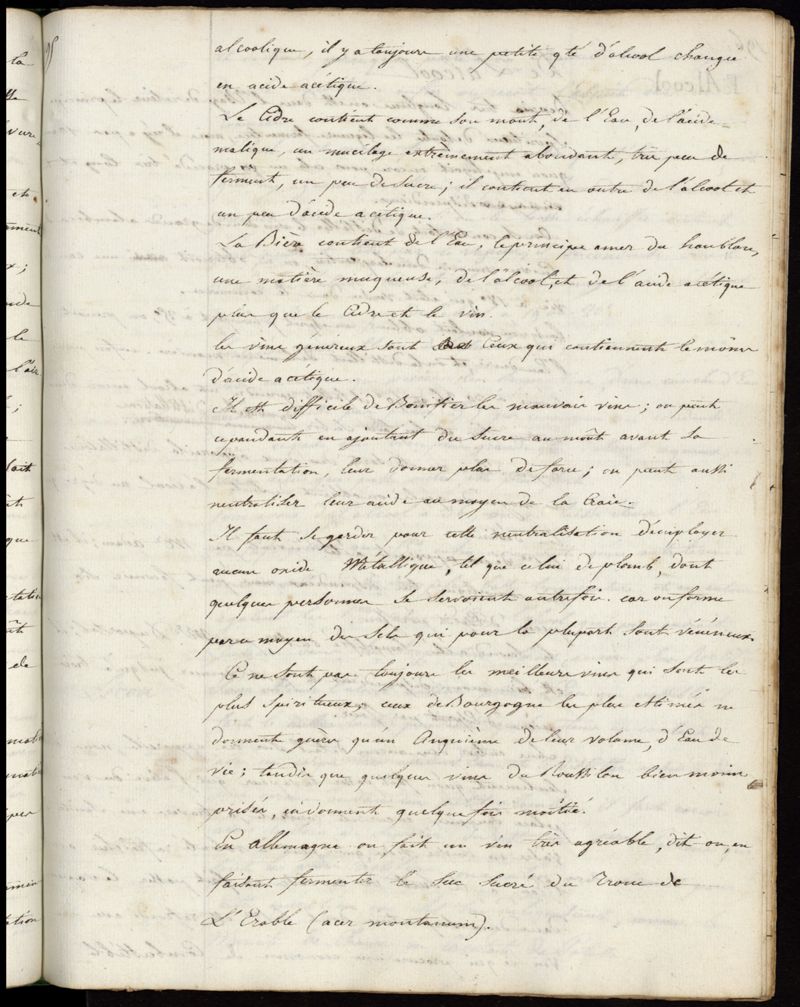 alcoolique, il y a toujours une petite qté d'alcool changée
en acide acétique.
Le Cidre contient comme son moût, de l'Eau, de l'acide
malique, un mucilage extrêmement abondant, très peu de
ferment, un peu de sucre; il contient en outre de l'alcool et
un peu d'acide acétique.
La Bière contient de l'Eau, le principe amer du houblon,
une matière muqueuse, de l'alcool, et de l'acide acétique
plus que le Cidre et le vin.
Les vins généreux sont ceux qui contiennent le moins
d'acide acétique.
Il est difficile de Bonifier les mauvais vins; on peut
cependant en ajoutant du sucre au moût avant sa
fermentation, leur donner plus de force; on peut aussi
neutraliser leur acide au moyen de la Craie.
Il faut se garder pour cette neutralisation d'employer
aucun oxide Métallique, tel que celui de plomb, dont
quelques personnes se servoient autrefois. car on forme
par ce moyen des sels qui pour la plupart sont vénéneux.
Ce ne sont pas toujours les meilleurs vins qui sont les
plus spiritueux; ceux de Bourgogne les plus estimés ne
donnent guère qu'un cinquième de leur volume, d'Eau de
vie; tandis que quelques vins du Roussilon bien moins
prisés, en donnent quelque fois moitié.
En allemagne on fait un vin très agréable, dit on, en
faisant fermenter le suc sucré du Tronc de
L'Erable (acer montanum).